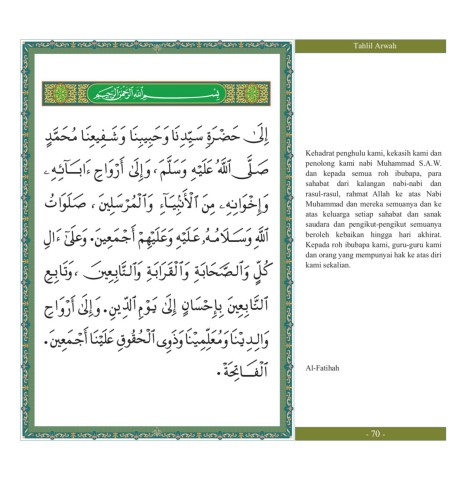 Tahlil Arwah
بِسْمِ اللَّهِ الرَّحْمَٰنِ الرَّحِيمِ
إِلَىٰ حَضْرَةِ سَيِّدِنَا وَحَبِيبِنَا وَشَفِيعِنَا مُحَمَّدٍ
صَلَّى اللَّهُ عَلَيْهِ وَسَلَّمَ، وَإِلَىٰ أَرْوَاحِ ءَابَآئِهِۦ
وَإِخْوَانِهِۦ مِنَ الْأَنْبِيَآءِ وَالْمُرْسَلِينَ، صَلَوَاتُ
اللَّهِ وَسَلَامُهُۥ عَلَيْهِ وَعَلَيْهِمْ أَجْمَعِينَ. وَعَلَىٰ ءَالِ
كُلٍّ وَالصَّحَابَةِ وَالْقَرَابَةِ وَالتَّابِعِينَ، وَتَابِعِ
التَّابِعِينَ بِإِحْسَانٍ إِلَىٰ يَوْمِ الدِّينِ. وَإِلَىٰ أَرْوَاحِ
وَالِدِينَا وَمُعَلِّمِينَا وَذَوِى الْحُقُوقِ عَلَيْنَا أَجْمَعِينَ.
الْفَاتِحَةْ.
Kehadrat penghulu kami, kekasih kami dan
penolong kami nabi Muhammad S.A.W.
dan kepada semua roh ibubapa, para
sahabat dari kalangan nabi-nabi dan
rasul-rasul, rahmat Allah ke atas Nabi
Muhammad dan mereka semuanya dan ke
atas keluarga setiap sahabat dan sanak
saudara dan pengikut-pengikut semuanya
beroleh kebaikan hingga hari akhirat.
Kepada roh ibubapa kami, guru-guru kami
dan orang yang mempunyai hak ke atas diri
kami sekalian.
Al-Fatihah
- 70 -